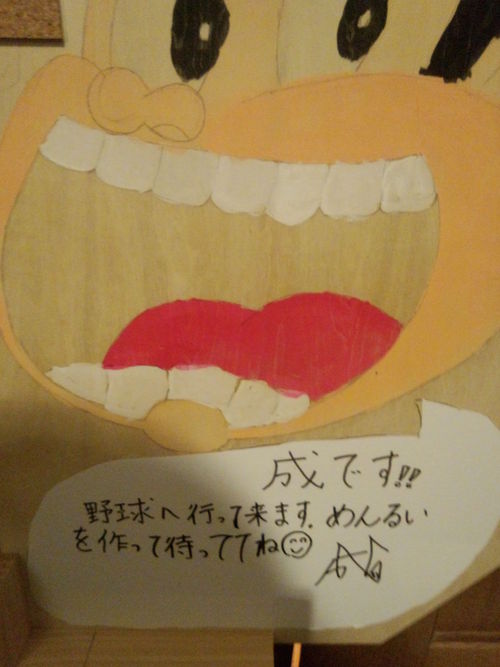 成です!!
野球へ行って来ます。めんるい
を作って待っててね